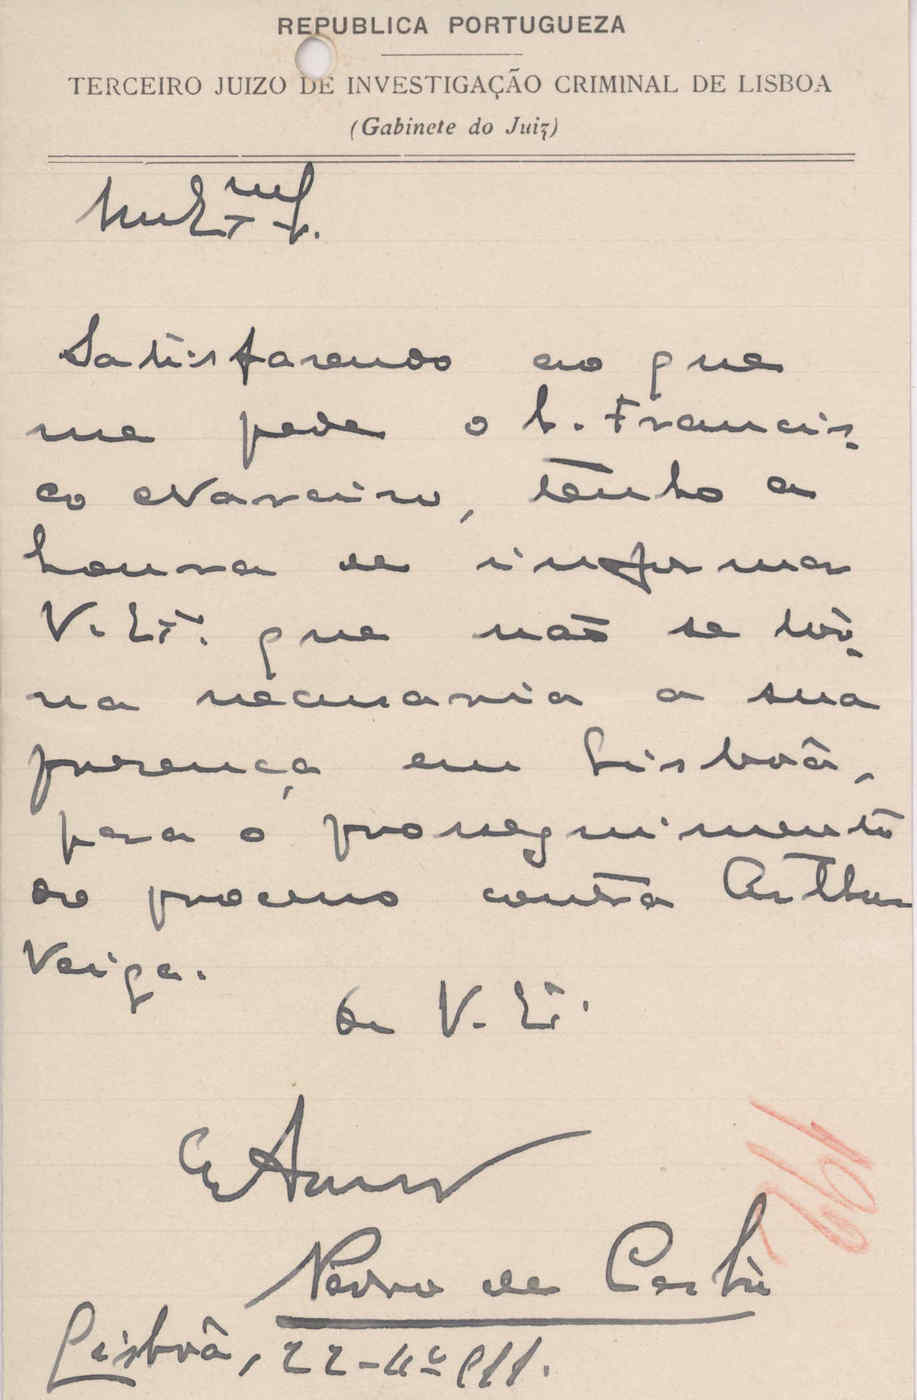 REPUBLICA PORTUGUEZA
TERCEIRO JUIZO DE INVESTIGAÇÃO CRIMINAL DE LISBOA
(Gabinete do Juiz)
Satisfazendo ao que
me pede o S. Francis-
co Navarro, tenho a
honra de informar
V. Exª. que não se tor-
na necessaria a sua
presença em Lisboa,
para o proseguimento
do processo contra Arthur
Veiga.
De V. Exª.
Pedro de Castro
Lisboa, 22-4º-911.